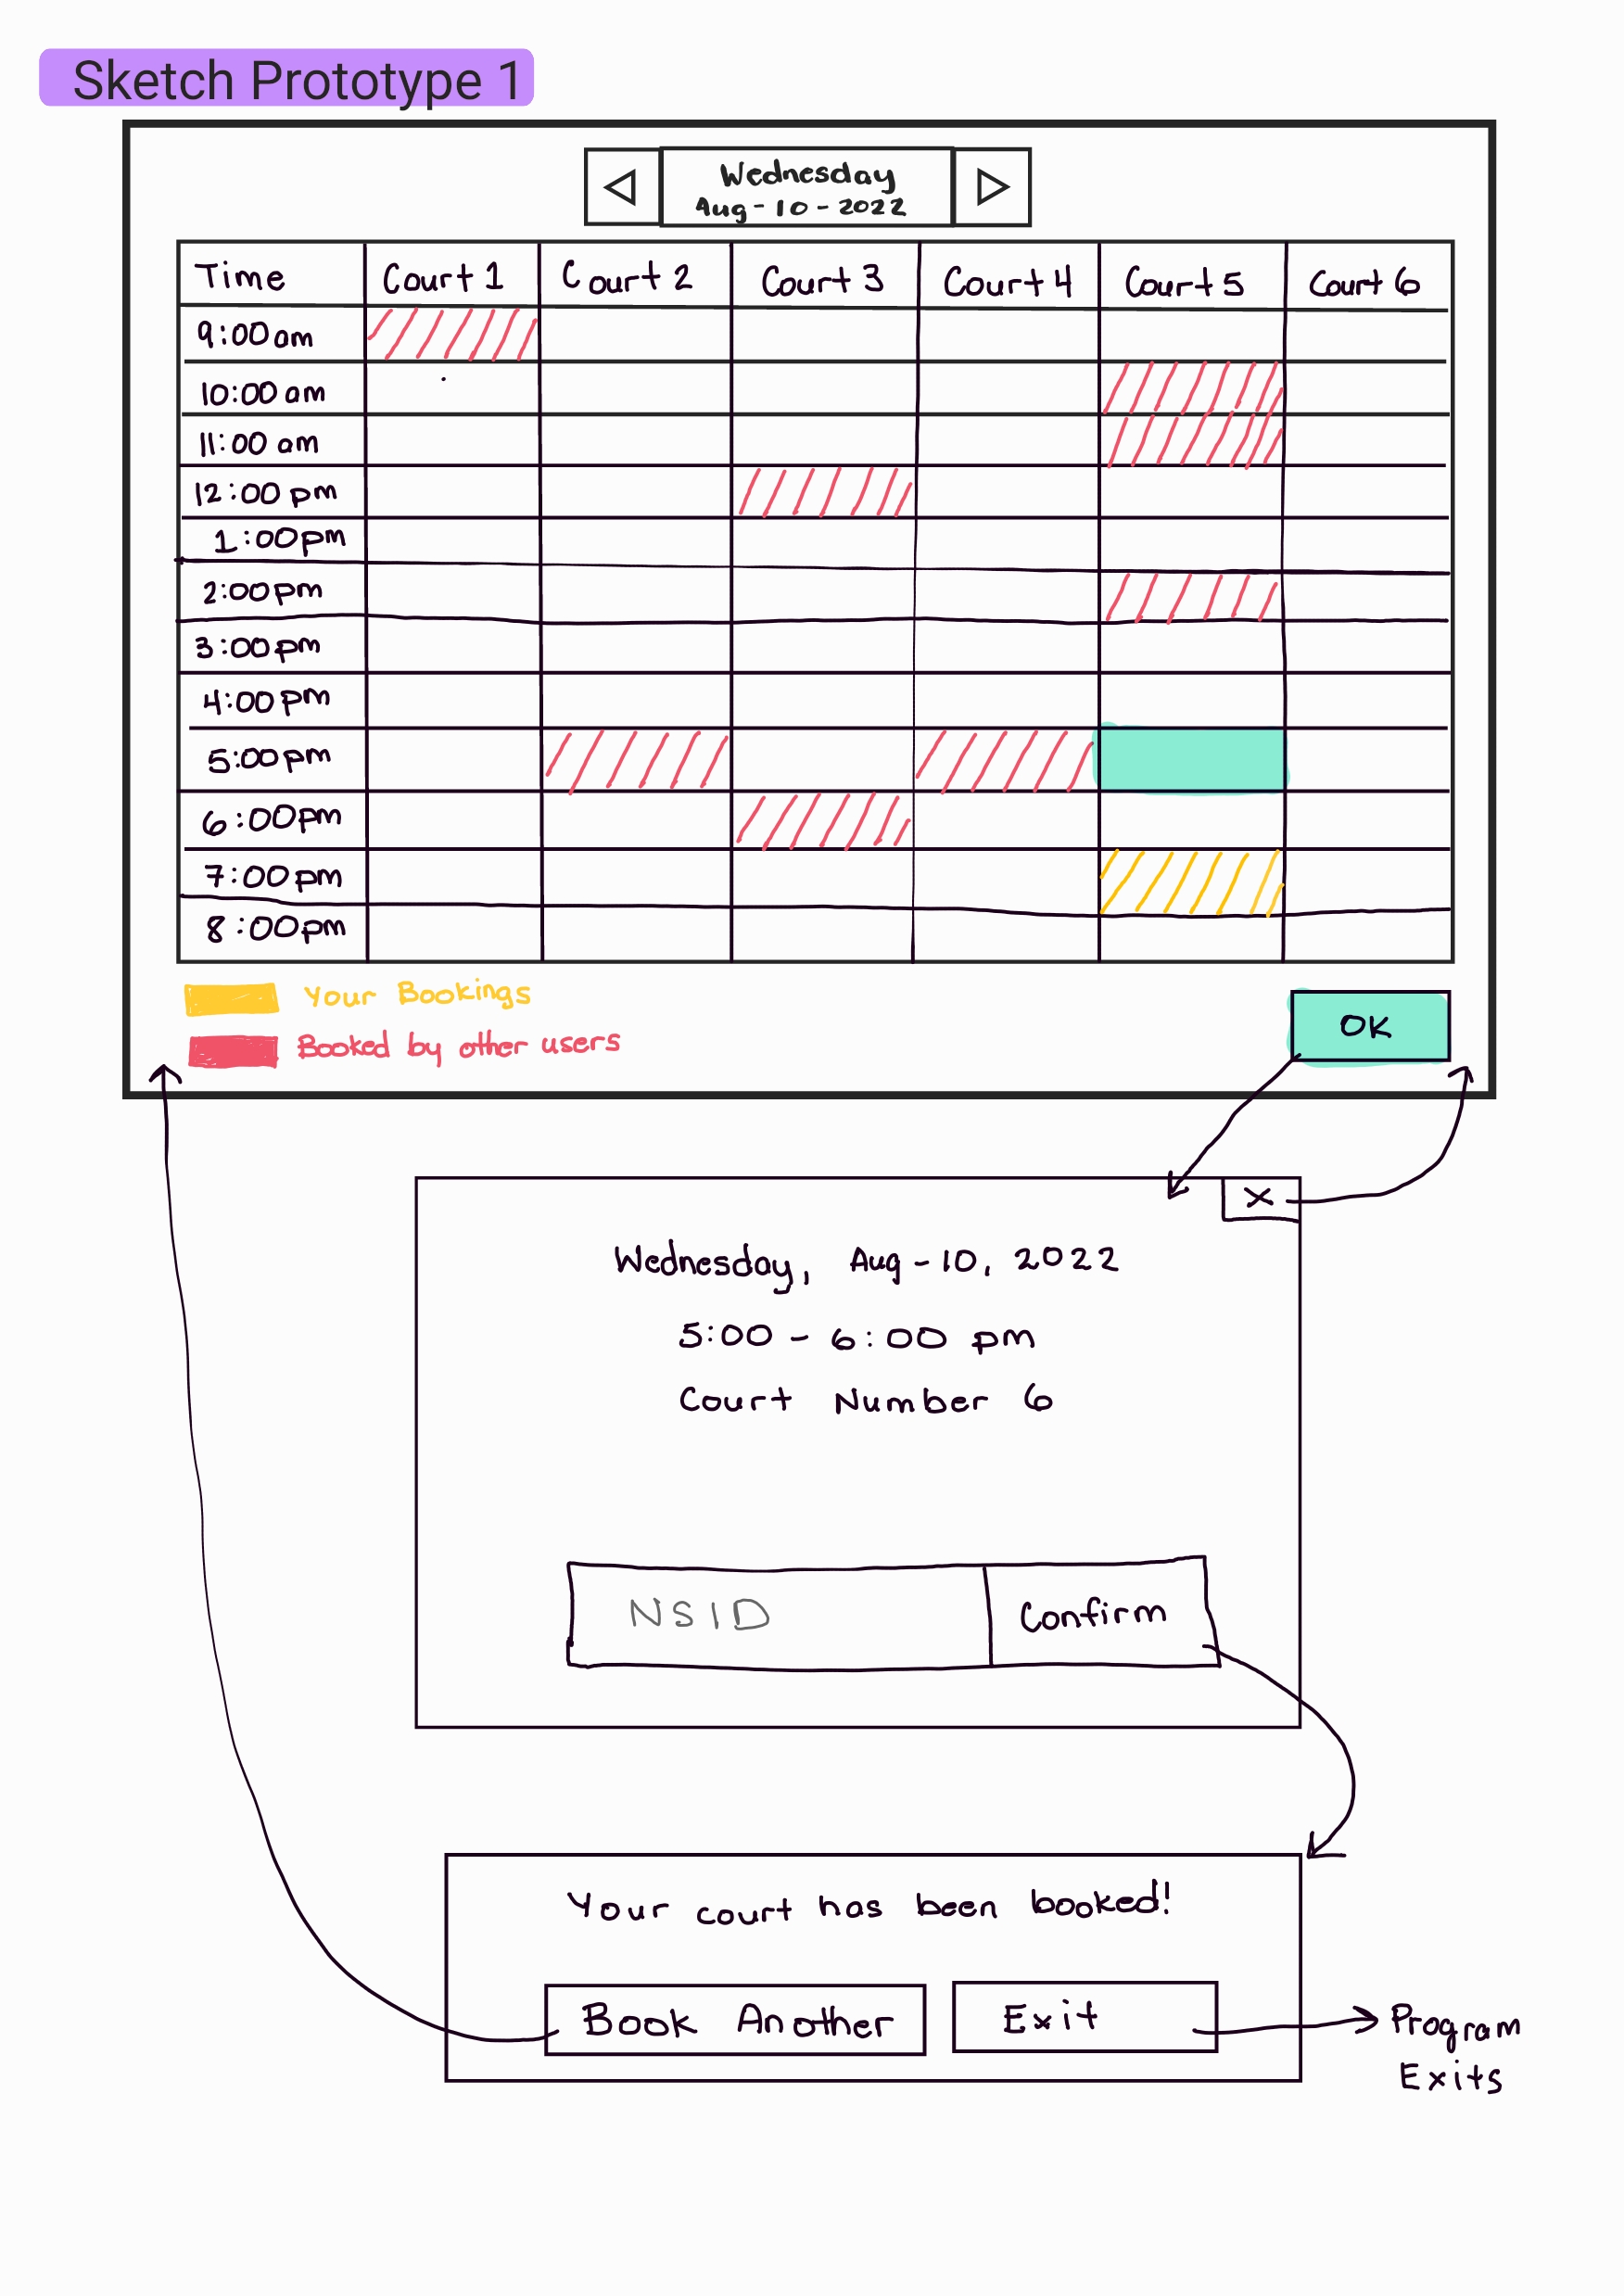 Sketch Prototype 1
Wednesday
Aug-10-2022
Time Court 1 Court 2 Court 3 Court 4 Court 5 Court 6
9:00am
10:00 am
11:00 am
12:00 pm
1:00pm
2:00pm
3:00pm
4:00 pm
5:00pm
6:00pm
7:00pm
8:00pm
Your Bookings
Booked by other users
OK
X
Wednesday, Aug-10, 2022
5:00 - 6:00 pm
Court Number 6
NSID Confirm
Your court has been booked!
Book Another Exit
Program
Exits